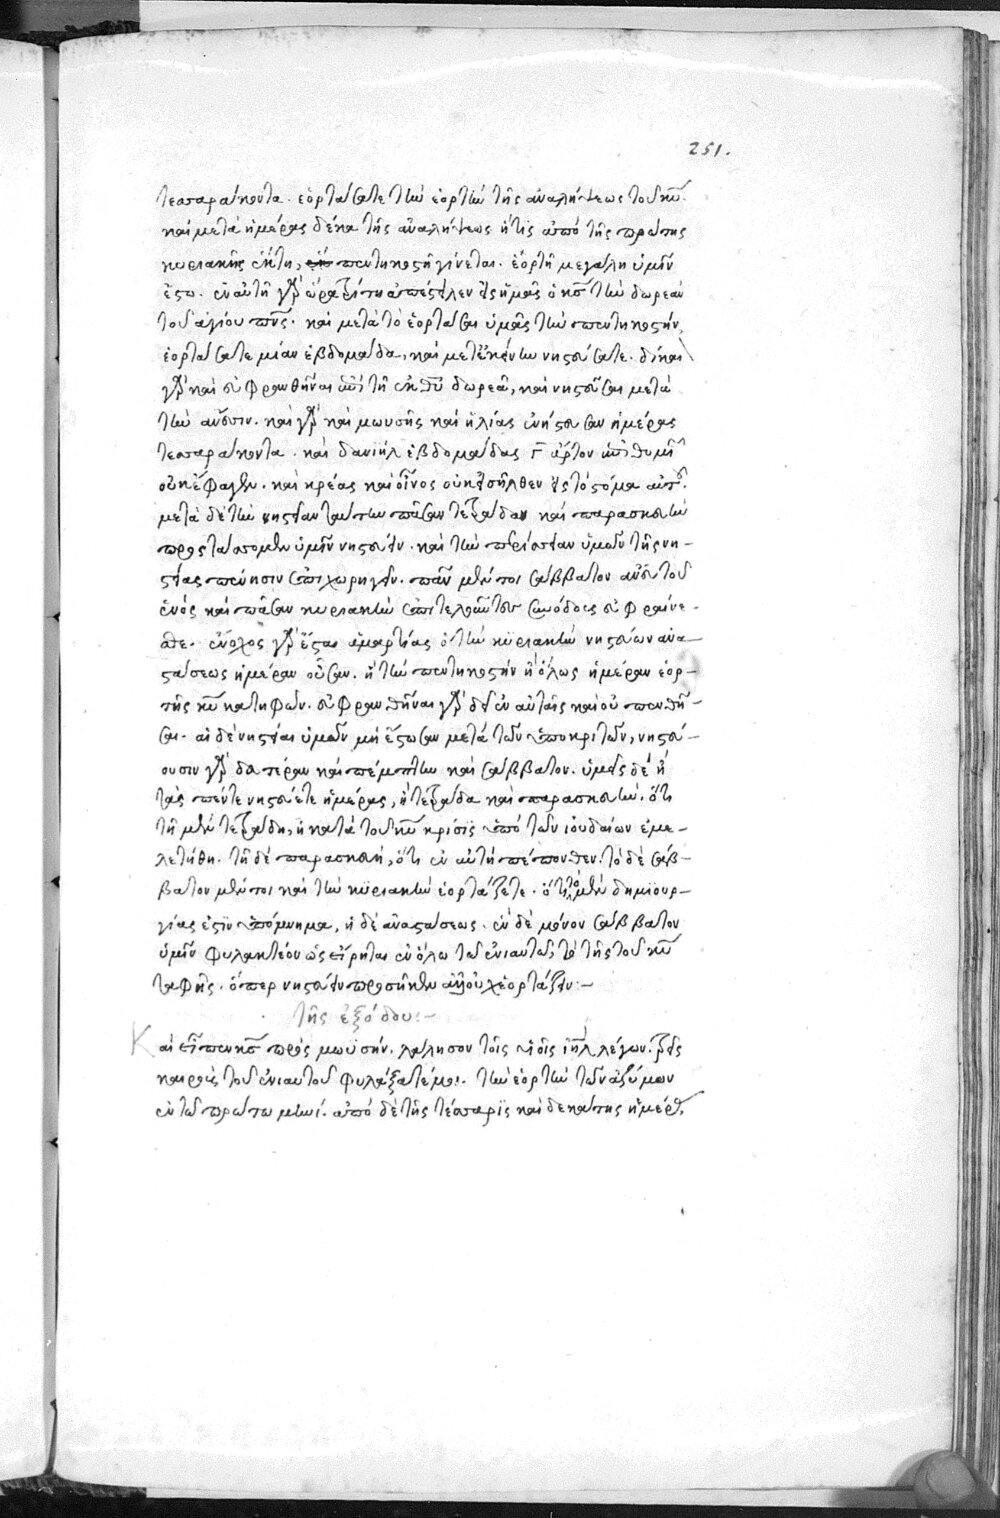 251.
τεσσαράκοντα. ἑορτάσατε τὴν ἑορτὴν τῆς ἀναλήψεως τοῦ κῦ.
καὶ μετὰ ἡμέρας δέκα τῆς ἀναλήψεως ἥτις ἀπὸ τῆς πρώτης
κυριακῆς ἥτις, πεντηκοστὴ γίνεται. ἑορτὴ μεγάλη ὑμῖν
ἔστω. ἐν αὐτῇ γὰρ ὥρα τρίτη ἀπέστειλεν εἰς ἡμᾶς ὁ κς τὴν δωρεὰν
τοῦ ἁγίου πνς. καὶ μετὰ τὸ ἑορτάσαι ὑμᾶς τὴν πεντηκοστήν,
ἑορτάσατε μίαν ἑβδομάδα, καὶ μετ' ἐκείνην νηστεύσατε. δίκαι
γὰρ καὶ εὐφρανθῆναι ἐπὶ τῇ ἐκ θῦ δωρεᾷ, καὶ νηστεῦσαι μετὰ
τὴν ἄνεσιν. καὶ γὰρ καὶ μωυσῆς καὶ ἡλίας ἐνήστευσαν ἡμέρας
τεσσαράκοντα. καὶ δανιὴλ ἑβδομάδας γ ἄρτον ἐπιθυμιῶν
οὐκ ἔφαγεν. καὶ κρέας καὶ οἶνος οὐκ εἰσῆλθεν εἰς τὸ στόμα αὐτοῦ.
μετὰ δὲ τὴν νηστείαν ταύτην πᾶσαν τετράδα καὶ παρασκευὴν
προστάσσομεν ὑμῖν νηστεύειν. καὶ τὴν περισσείαν ὑμῶν τῆς νη-
στείας πένησιν ἐπιχωρηγεῖν. πᾶν μέντοι σάββατον ἄνευ τοῦ
ἑνὸς καὶ πᾶσαν κυριακὴν ἐπιτελοῦντες συνόδους εὐφραίνε-
σθε. ἔνοχος γὰρ ἔσται ἁμαρτίας ὁ τὴν κυριακὴν νηστεύων ἀνα-
στάσεως ἡμέραν οὖσαν. ἢ τὴν πεντηκοστὴν ἢ ὅλως ἡμέραν ἑορ-
τῆς κῦ κατηφῶν. εὐφρανθῆναι γὰρ δεῖ ἐν αὐταῖς καὶ οὐ πενθῆ-
σαι. αἱ δὲ νηστεῖαι ὑμῶν μὴ ἔστωσαν μετὰ τῶν ὑποκριτῶν, νηστεύ-
ουσιν γὰρ δευτέραν καὶ πέμπτην καὶ σάββατον. ὑμεῖς δὲ ἢ
τὰς πέντε νηστεύετε ἡμέρας, ἢ τετράδα καὶ παρασκευήν. ὅτι
τῇ μὲν τετράδι, ἡ κατὰ τοῦ κῦ κρίσις ὑπὸ τῶν ἰουδαίων ἐμε-
λετήθη. τῇ δὲ παρασκευῇ, ὅτι ἐν αὐτῇ πέπονθεν. τὸ δὲ σάβ-
βατον μέντοι καὶ τὴν κυριακὴν ἑορτάζετε. ὅτι τὸ μὲν δημιουρ-
γίας ἐστὶν ὑπόμνημα, ἡ δὲ ἀναστάσεως. ἓν δὲ μόνον σάββατον
ὑμῖν φυλακτέον ὡς εἴρηται ἐν ὅλω τῶ ἐνιαυτῶ, τὸ τῆς τοῦ κῦ
ταφῆς. ὅπερ νηστεύειν προσῆκεν ἀλλ' οὐχ ἑορτάζειν:-
τῆς ἐξόδου:-
Καὶ εἶπεν κς πρὸς μωϋσήν. λάλησον τοῖς υἱοῖς ἰηλ λέγων. τρεῖς
καιροὺς τοῦ ἐνιαυτοῦ φυλάξατέ μοι. τὴν ἑορτὴν τῶν ἀζύμων
ἐν τῶ πρώτω μηνί. ἀπὸ δὲ τῆς τέσσαρις καὶ δεκάτης ἡμέρας